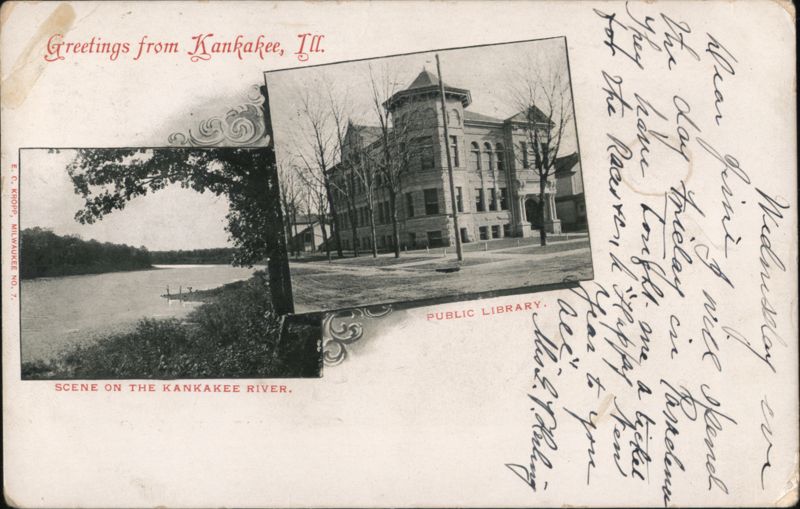 Greetings from Kankakee, Ill.
E. C. KROPP, MILWAUKEE NO. 7.
SCENE ON THE KANKAKEE RIVER.
PUBLIC LIBRARY.
Wednesday eve
Dear Jimi I will spend
the day Friday in Pasadena
They have bought me a ticket
for the Races, a "Happy New
Year to you
all"
Mrs.